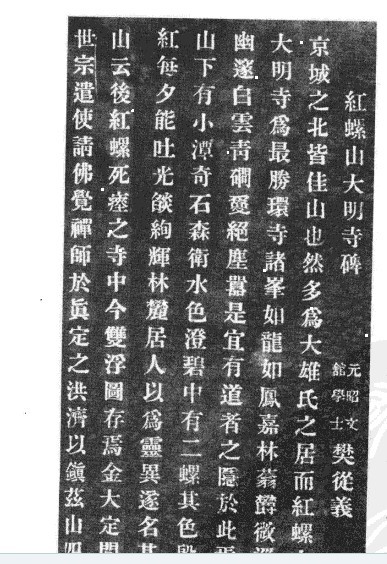 紅螺山大明寺碑
元昭文
館學士
樊從義
京城之北皆佳山也然多爲大雄氏之居而紅螺
大明寺爲最勝環寺諸峯如龍如鳳嘉林蓊欝
幽邃白雲靑磵敻絕塵囂是宜有道者之隱於此
山下有小潭奇石森衛水色澄碧中有二螺其色
紅每夕能吐光燄絢輝林麓居人以爲靈異遂名其
山云後紅螺死瘞之寺中今雙浮圖存焉金大定
世宗遣使請佛覺禪師於眞定之洪濟以鎭茲山